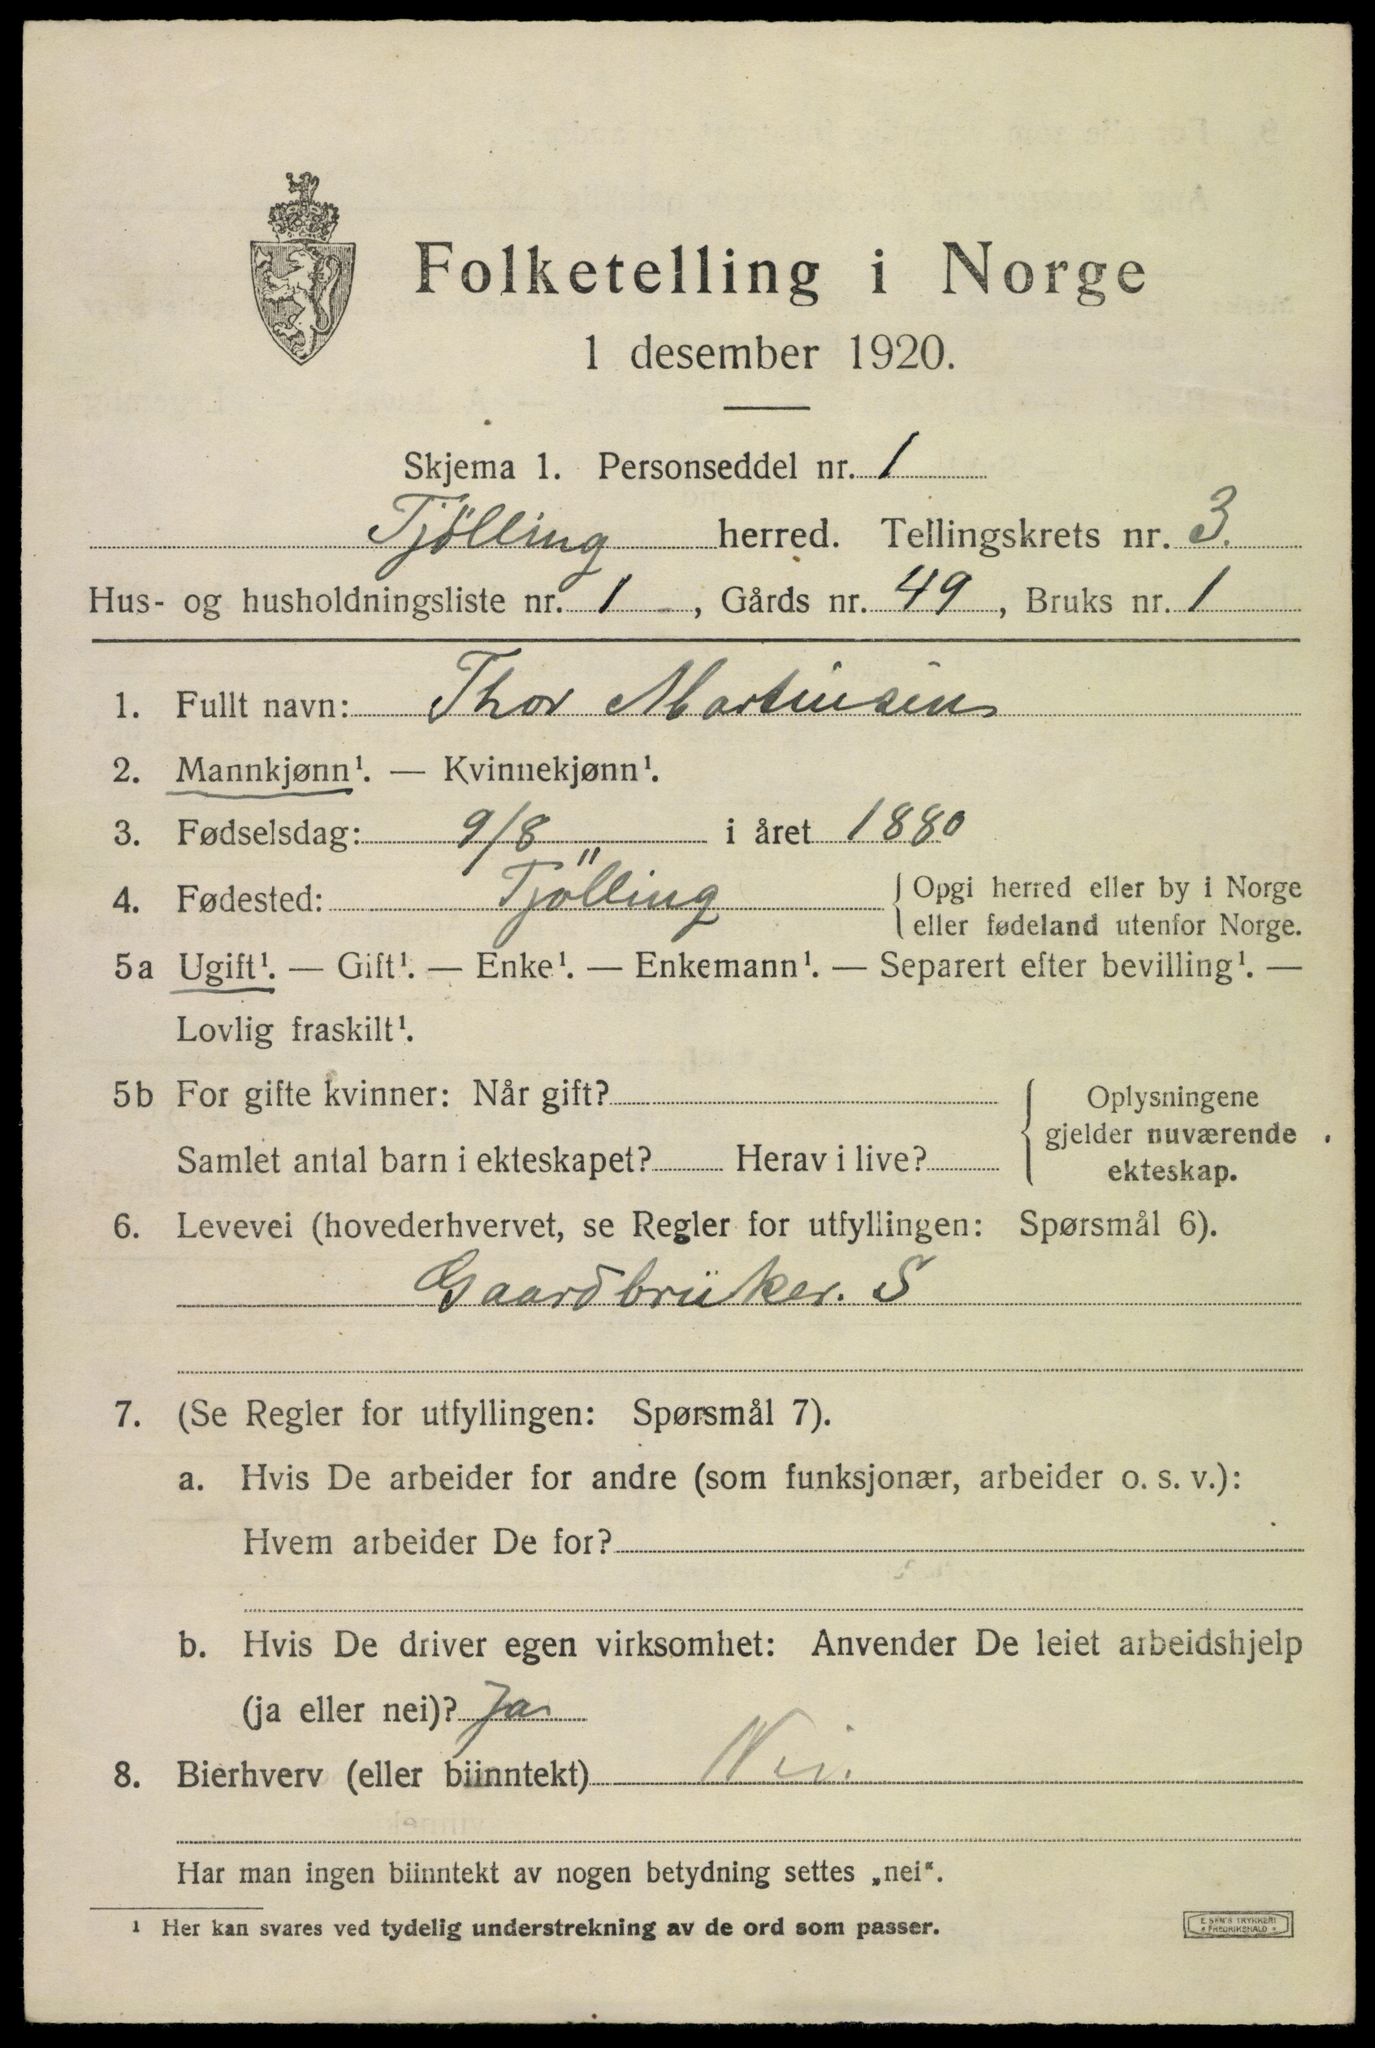 Folketelling i Norge
1 desember 1920.
Skjema 1. Personseddel nr. 1
Tjölling herred. Tellingskrets nr. 3.
Hus- og husholdningsliste nr. 1, Gårds nr. 49, Bruks nr. 1
1. Fullt navn: Thor Martinsen
2. Mannkjønn¹. — Kvinnekjønn¹.
3. Fødselsdag: 9/8 i året 1880
4. Fødested: Tjölling { Opgi herred eller by i Norge
eller fødeland utenfor Norge.
5a Ugift¹. — Gift¹. — Enke¹. — Enkemann¹. — Separert efter bevilling¹. —
Lovlig fraskilt¹.
5b For gifte kvinner: Når gift?
Samlet antal barn i ekteskapet? Herav i live?
{ Oplysningene
gjelder nuværende
ekteskap.
6. Levevei (hovederhvervet, se Regler for utfyllingen: Spørsmål 6).
Gaardbrüker. S
7. (Se Regler for utfyllingen: Spørsmål 7).
a. Hvis De arbeider for andre (som funksjonær, arbeider o. s. v.):
Hvem arbeider De for?
b. Hvis De driver egen virksomhet: Anvender De leiet arbeidshjelp
(ja eller nei)? Ja
8. Bierhverv (eller biinntekt) Nei.
Har man ingen biinntekt av nogen betydning settes „nei“.
¹ Her kan svares ved tydelig understrekning av de ord som passer.
E. SEM'S TRYKKERI
* FREDRIKSHALD *